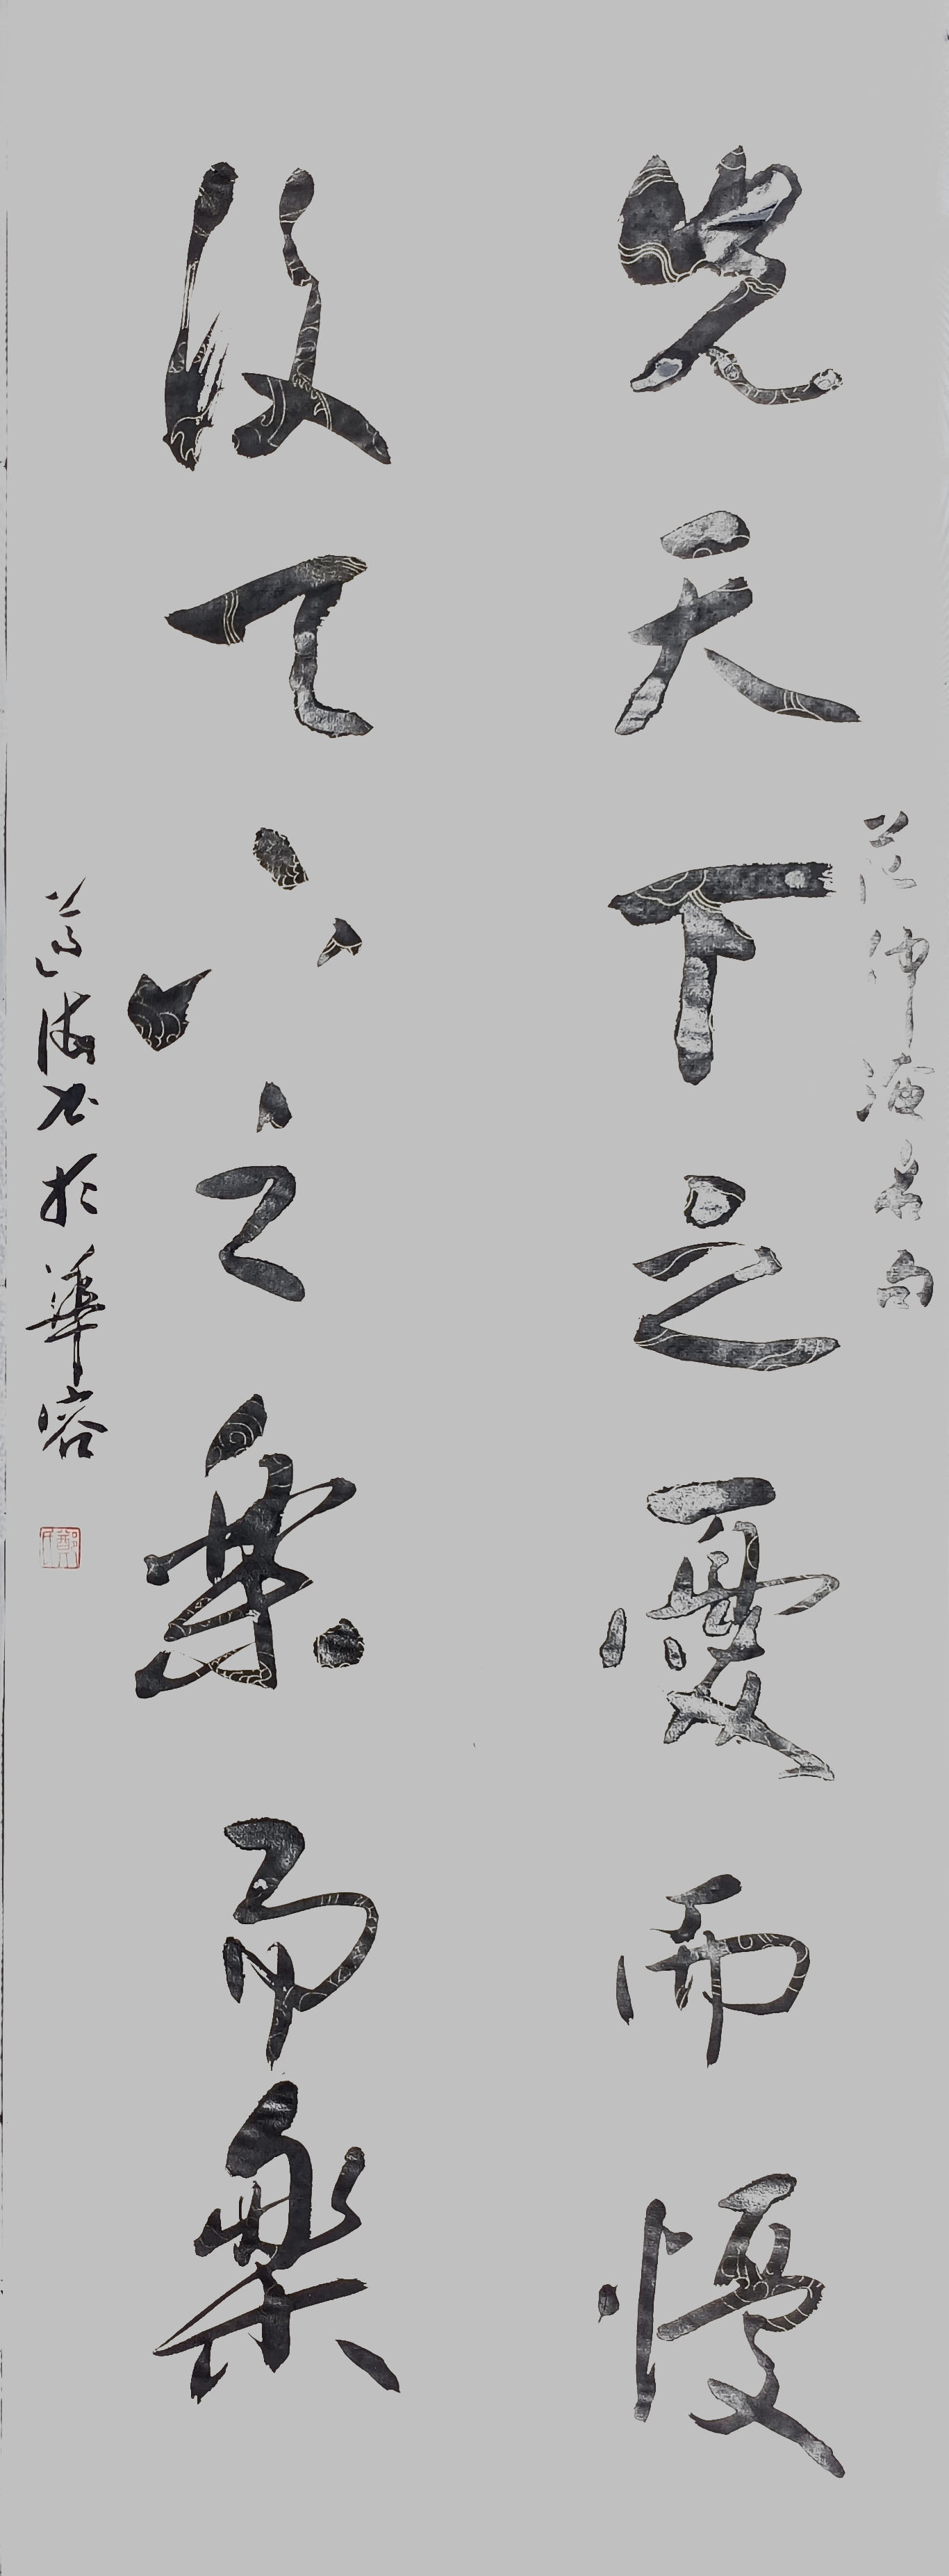 范仲淹名句
先天下之憂而憂
後天下之樂而樂
海书於華容
鄭